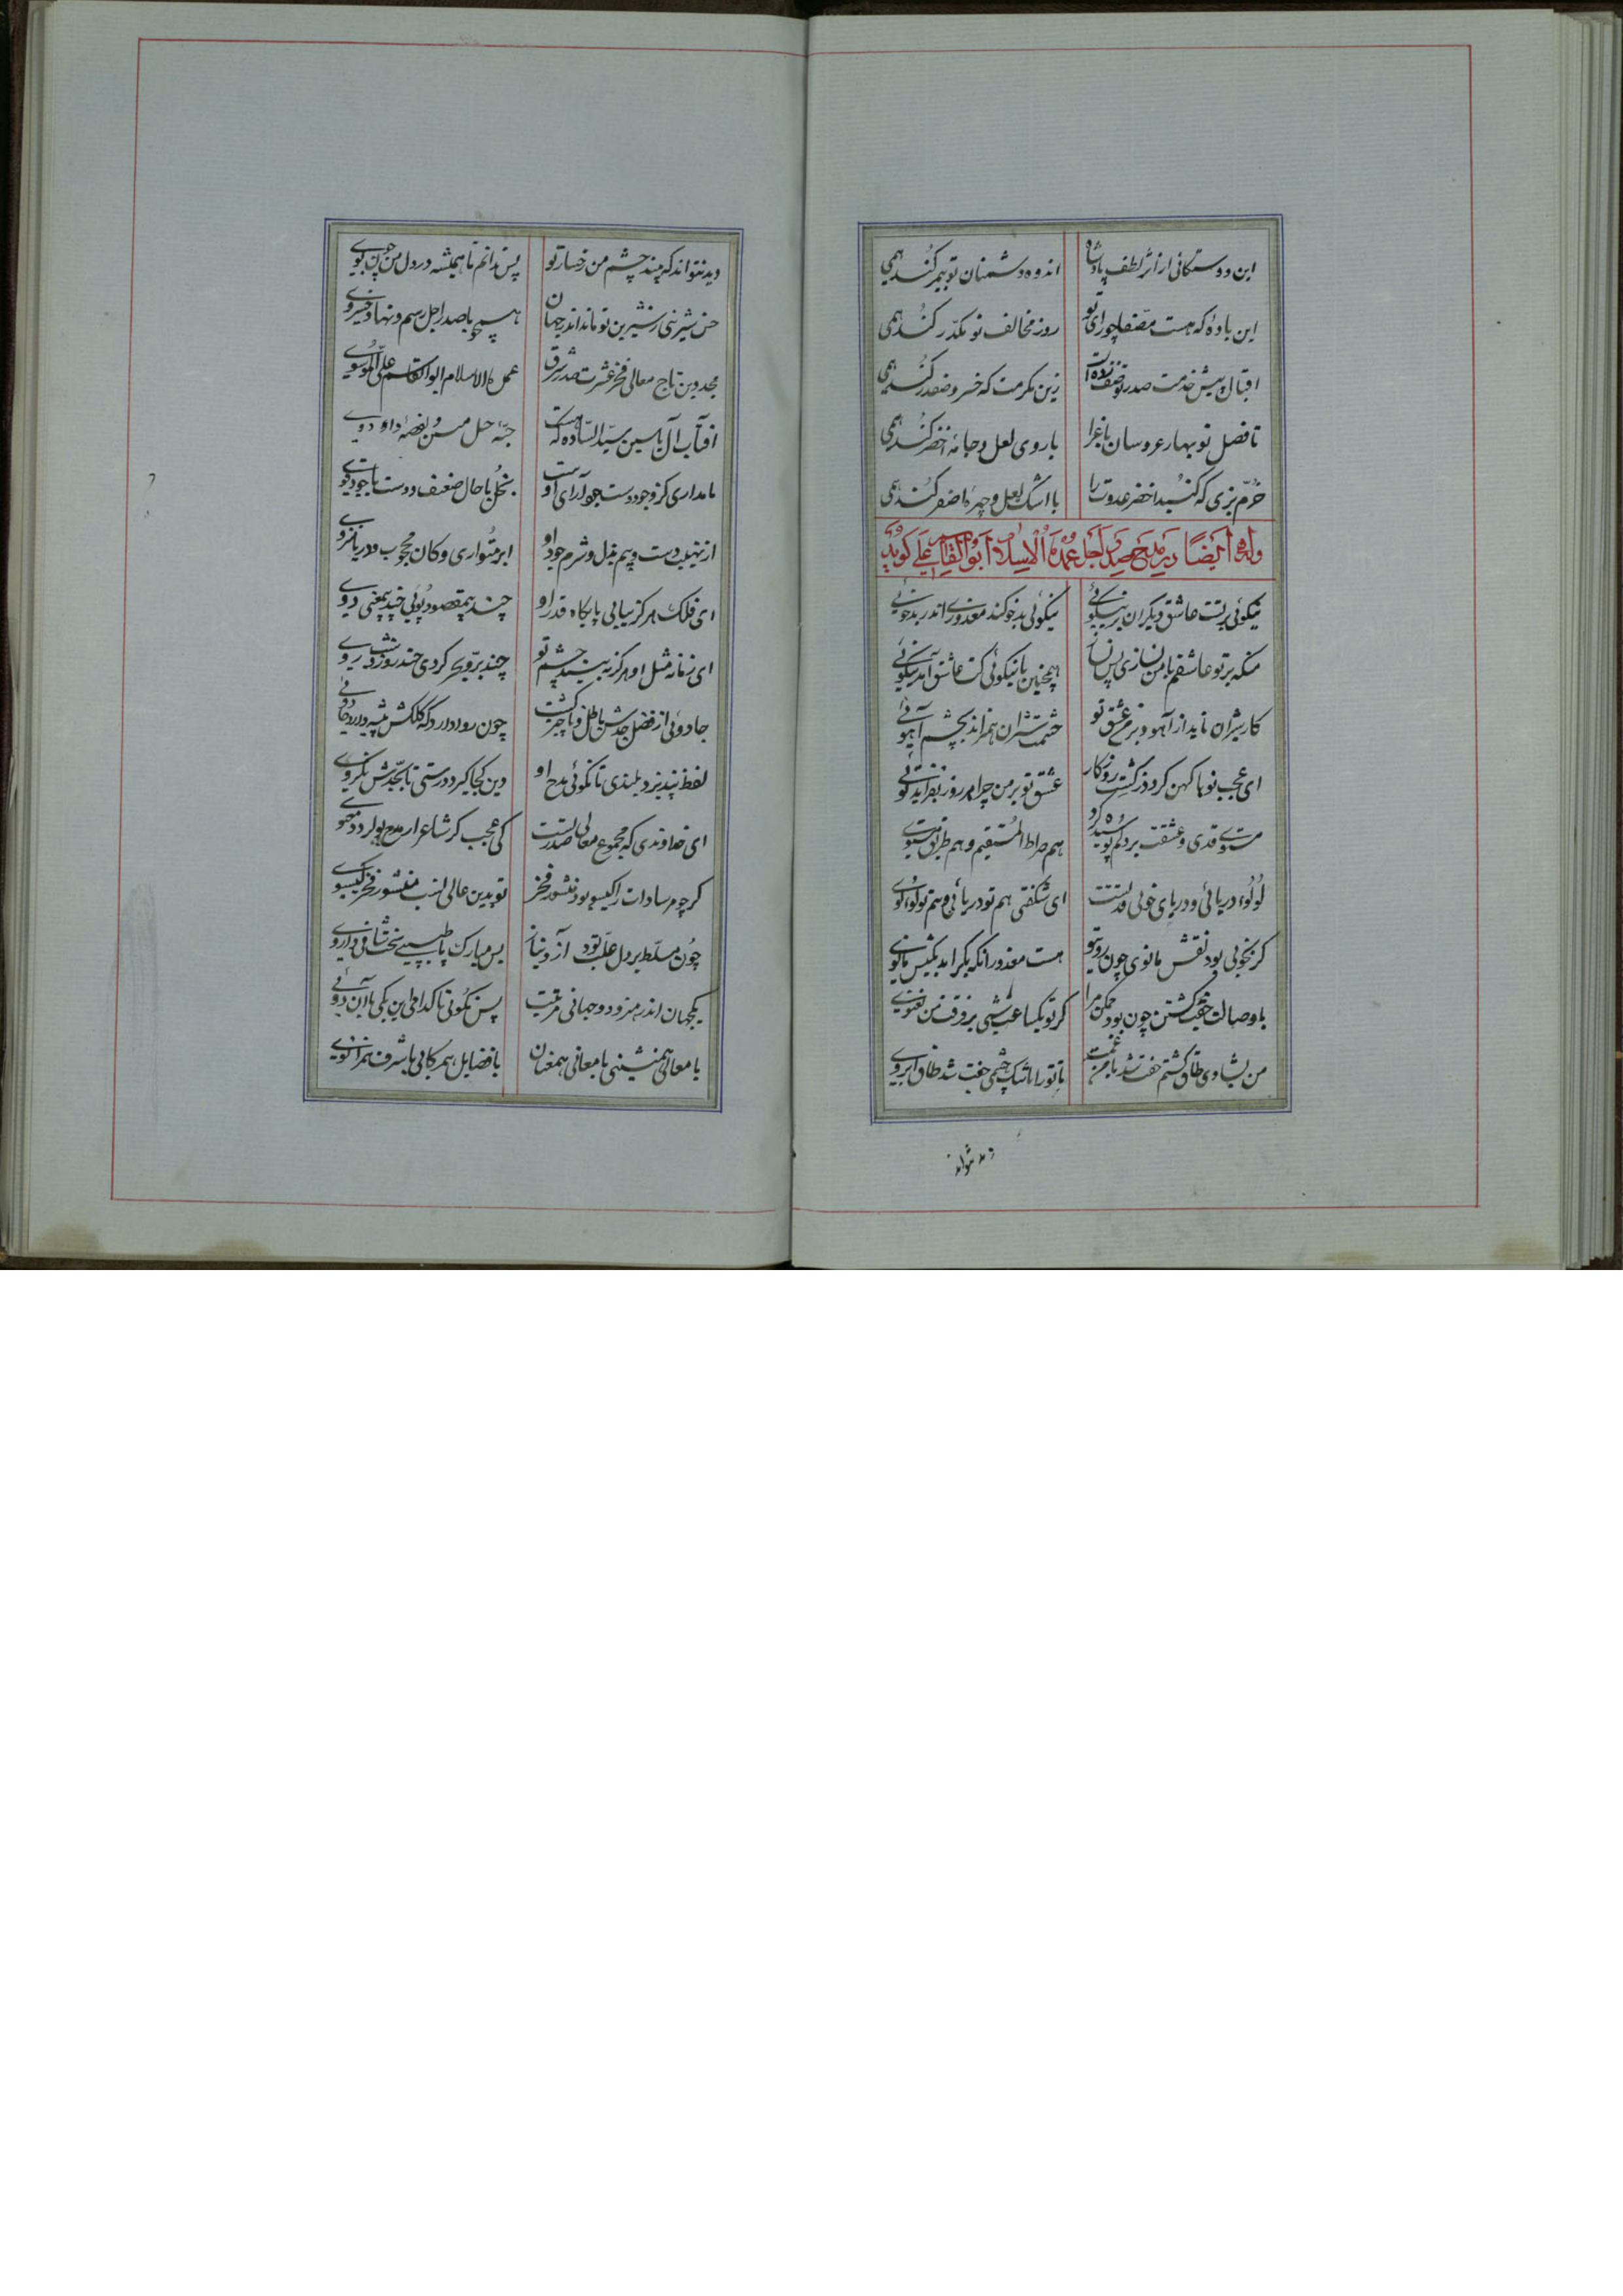 این دوستکانی از اثر لطف پادشاه اندوه دشمنان تو بیمر کند همی
این باده که هست مصفا چو رای تو روز مخالف تو مکدر کند همی
اقبال پیش خدمت صدر تو صف زده است زین مکرمت که خسرو صفدر کند همی
تا فصل نوبهار عروسان باغ را با روی لعل و جامه اخضر کند همی
خرم بزی که گنبد اخضر عدوت را با اشک لعل و چهره اصفر کند همی
وله ایضا در مدح صدر اجل عمدة الاسلام ابوالقاسم علی گوید
نیکوئی بر تست عاشق دیگران بر نیکوئی نیکوئی بدخو کند معذوری اندر بدخوئی
منکه بر تو عاشقم با من نسازی پس همچنین با نیکوئی کت عاشق آمد نیکوئی
کار شیران ناید از آهو و بزم عشق تو خشمت شیران همراند بچشم آهوئی
ای عجب نو با کهن گردد ز گشت روزگار عشق تو بر من چرا هر روز بفزاید نوی
قدی و عشقت بر دلم پوشیده کرد هم صراط المستقیم و هم طریق مستوی
لؤلؤ دریائی و دریای خوبی قد تست ای شگفتی هم تو دریائی و هم تو لولوی
گر بخوبی بود نقش مانوی چون روی تو هست معذور انکه بگراید بکیش مانوی
با وصالت جفت گشتن چون بود ممکن مرا گر تو یکساعت شبی بر فرقت من نغنوی
من ز شادی طاق گشتم جفت شد با من غمت تا تو را با شک چشمی جفت شد طاق ابروی
دید نتواند
دید نتواند که بیند چشم من رخسار تو پس ندانم تا همیشه در دل من چون بوی
حسن شیرینی ز شیرین تو ماند اندر جهان همچو با صدر اجل رسم و نهاد خسروی
مجد دین تاج معالی فخر عشرت صدر شرق عمدة الاسلام ابوالقاسم علی الموسوی
افتاب آل یاسین سید الساده که هست
نامداری کز وجود دست جود آرای او بخل با حال ضعیف و دوست با جود قوی
از نهیب دست و بیم بذل و شرم جود او ابر متواری و کان محجوب و دریا منزوی
ای فلک هرگز نیابی پایگاه قدر او چند بیمقصود پوئی چند بیمعنی دوی
ای زمانه مثل او هرگز نبیند چشم تو چند بر بیهوده گردی چند روز و شب روی
جادوئی از فضل جدش باطل و ناچیز گشت چون روا دارد که کلکش پیشه دارد جادوئی
لفظ نپذیرد بلندی تا نگوئی مدح او دین کجا گیرد درستی تا بجدش نگروی
ای خداوندی که مجموع معالی صدر تست کی عجب گر شاعر از مدح تو گردد معنوی
گرچه مر سادات را گیسو بود منشور فخر تو بدین عالی نسب منشور فخر گیسوی
چون مسلط بر دل علت بود آز و نیاز بس مبارک پا طبیبی سخت شافی داروی
یکجهان اندر هنر و دو جهانی مرتبت پس نگوئی تا کدامی این یکی با آن دوئی
با معالی همنشینی با معانی همعنان با فضایل همرکابی با شرف همزانوی